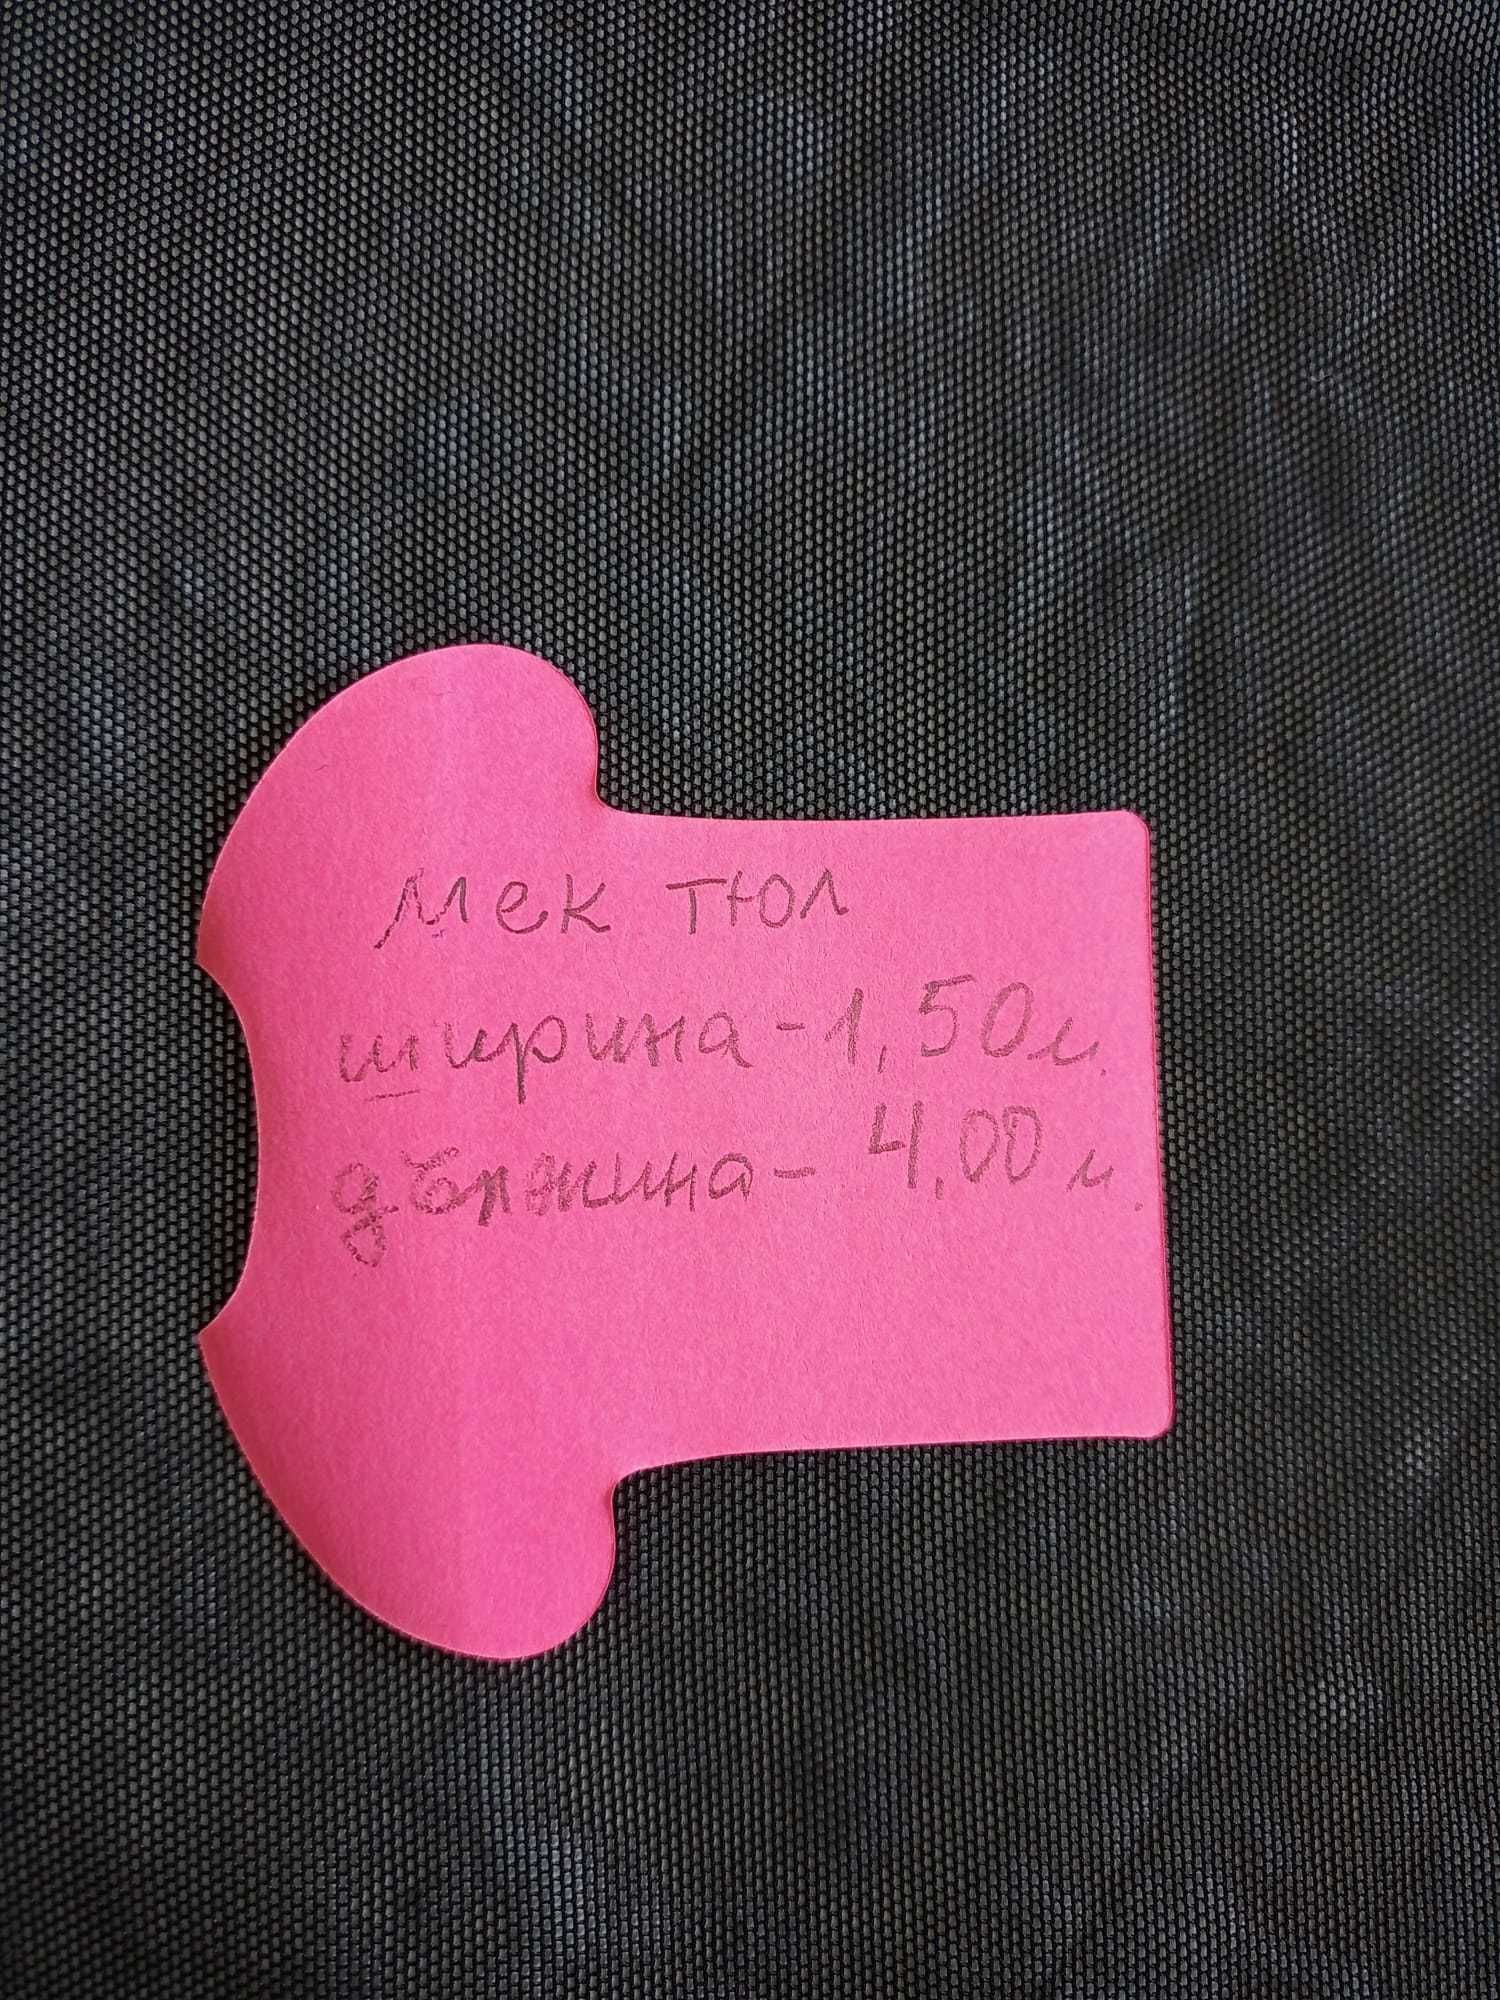 Мек тюл
ширина - 1,50 м.
дължина - 4,00 м.